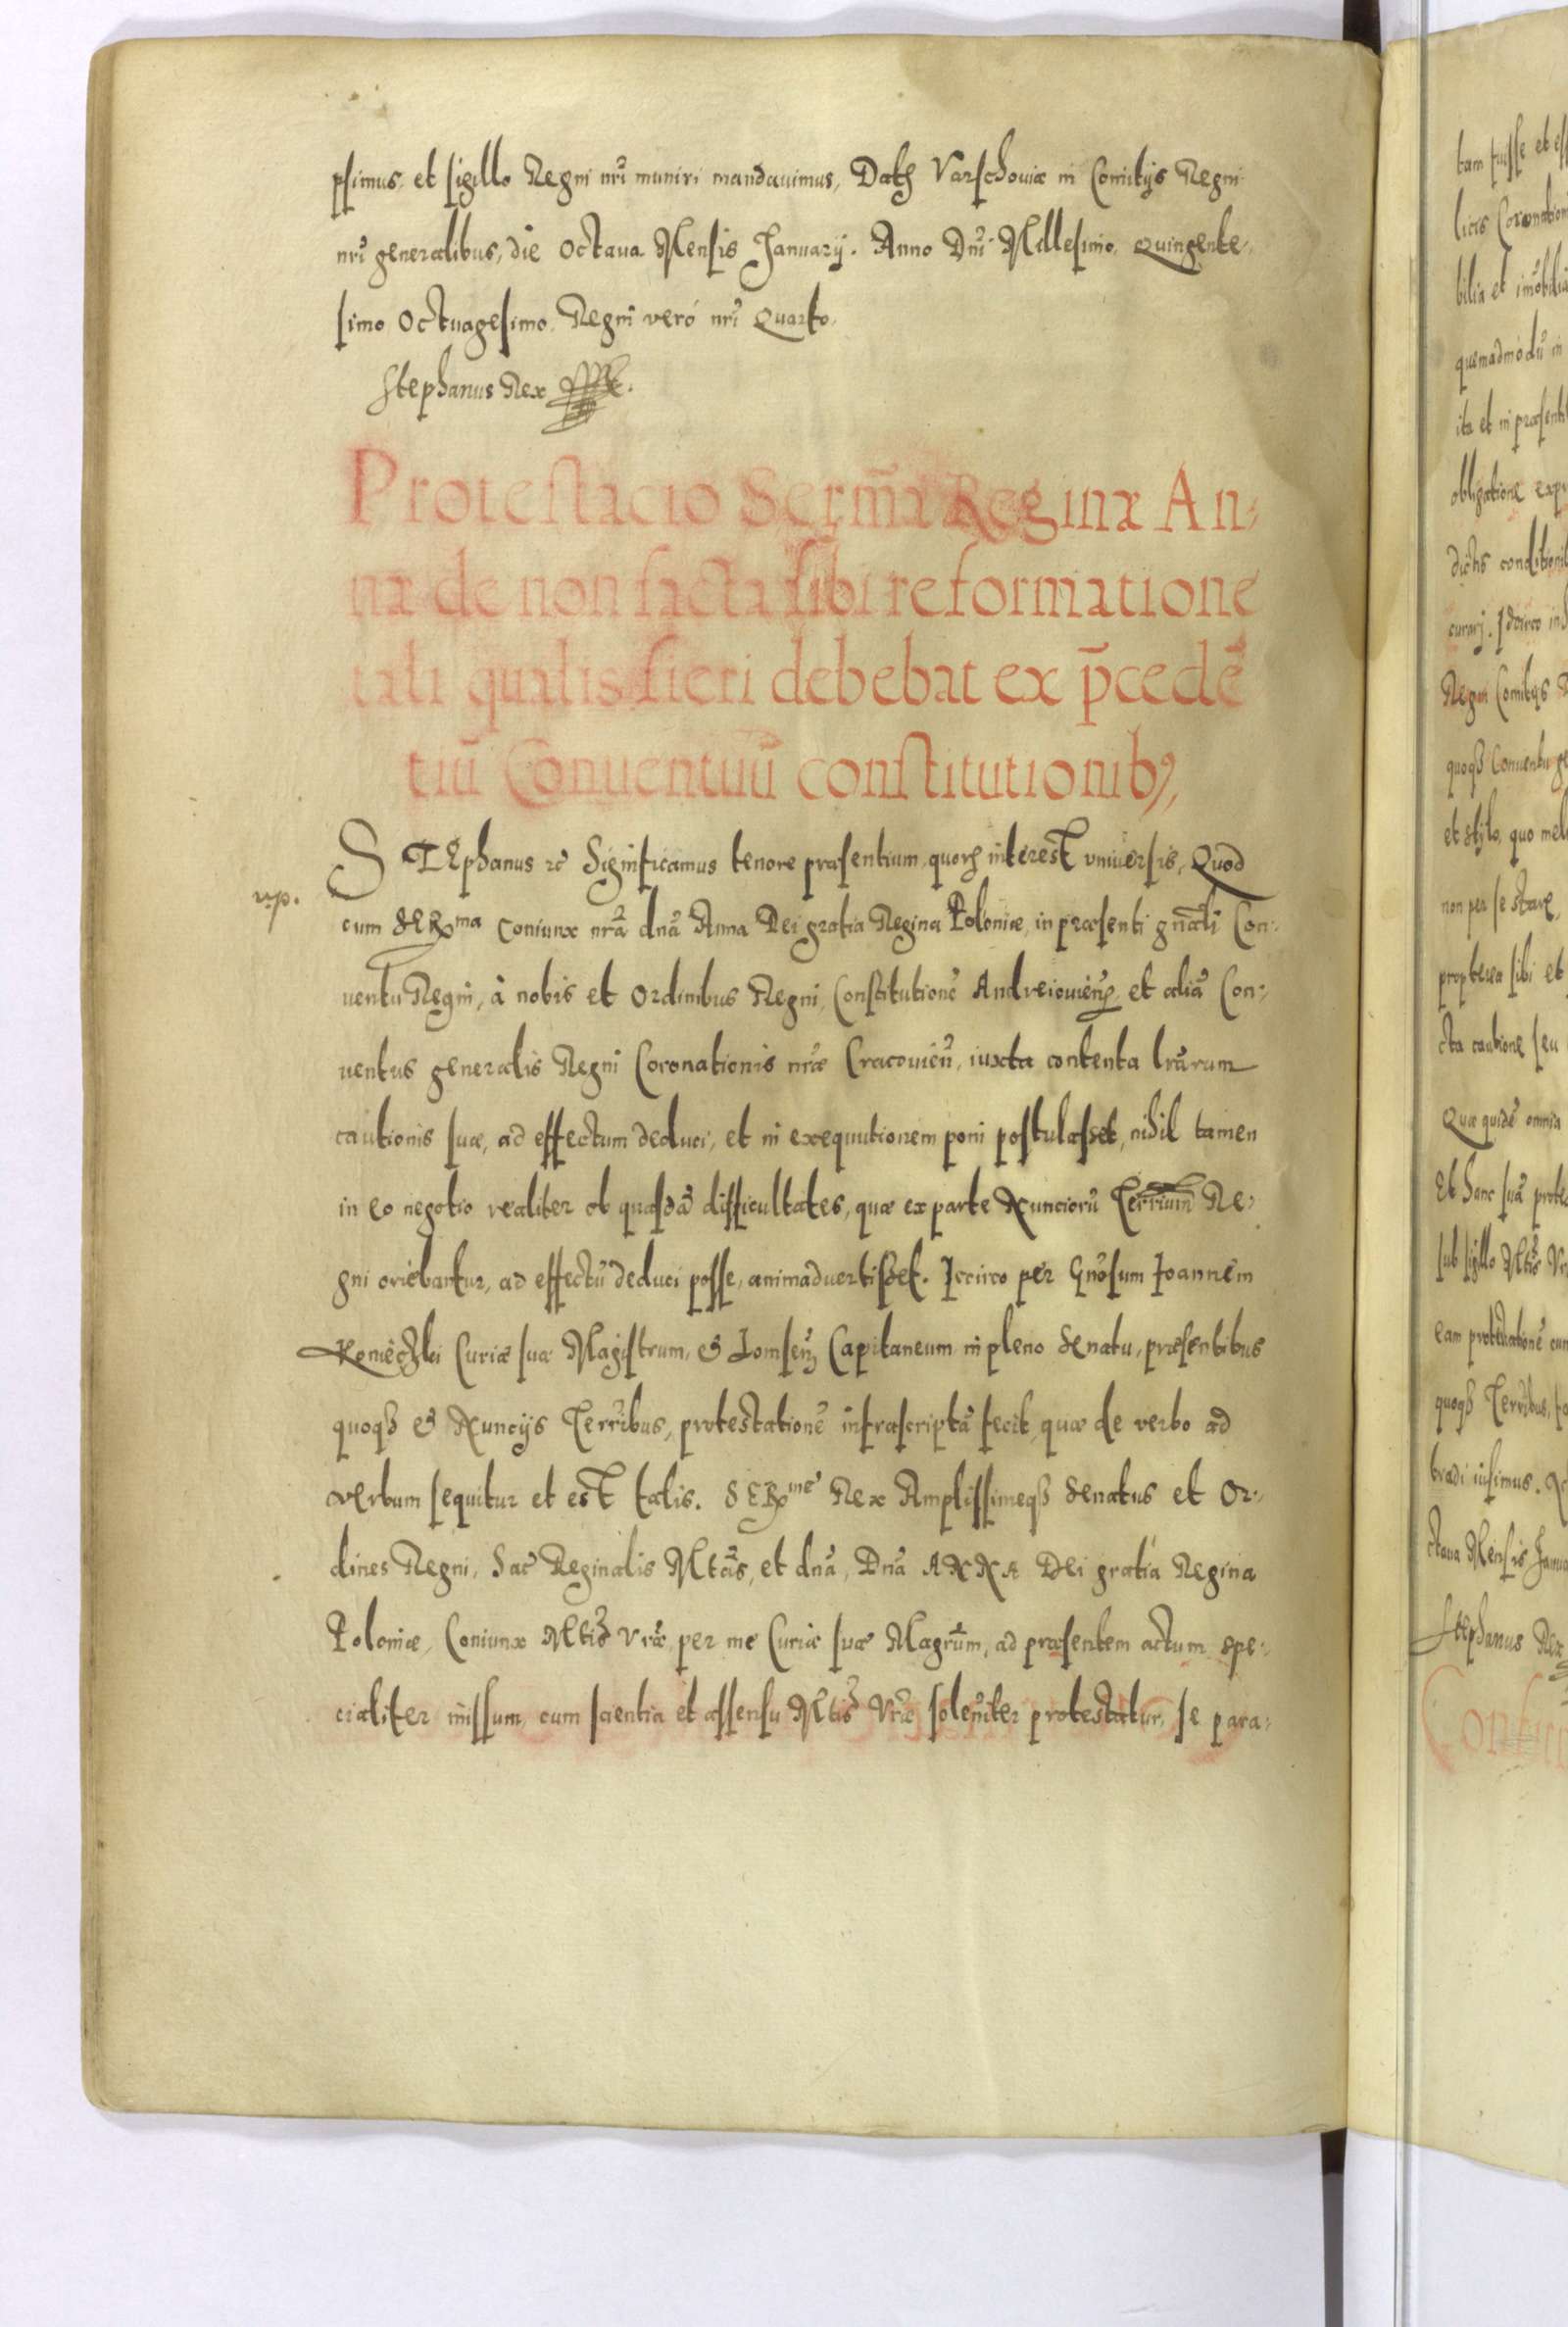 psimus, et sigillo Regni nrĩ muniri mandauimus, Datꝝ Varschouiæ in Comitijs Regni
nrĩ generalibus, die Octaua Mensis Januarij. Anno Dnĩ Millesimo, Quingente,
simo Octuagesimo, Regni veró nrĩ Quarto.
Stephanus Rex
Protestacio Serm̃a Reginæ An,
næ de non facta sibi reformatione
tali qualis fieri debebat ex p̃cedẽ
tiũ Conuentuũ constitutionibꝫ,
STEphanus ꝛc̃ Significamus tenore præsentium, quorꝝ interest vniuersis, Quod
vp.
cum SERma Coniunx nrã dnã Anna Dei gratia Regina Poloniæ, in præsenti gnãli Con-
uentu Regni, à nobis et Ordinibus Regni, Constitutionẽ Andreiouien̄, et aliã Con-
uentus generalis Regni Coronationis nræ̃ Cracouien̄, iuxta contenta lrãrum
cautionis suæ, ad effectum deduci, et in exequutionem poni postulasset, nihil tamen
in eo negotio realiter ob quasdã difficultates, quæ ex parte Nunciorũ Terrium̃ Re-
gni oriebantur, ad effectũ deduci posse, animaduertisset. Iccirco per Gnõsum Joannem
Konieczki Curiæ suæ Magistrum, & Lomsen̄ Capitaneum in pleno Senatu, præsentibus
quoqꝫ & Nuncijs Terrĩbus, protestationẽ infrascriptã fecit, quæ de verbo ad
verbum sequitur et est talis. SERme Rex Amplissimeqꝫ Senatus et Or-
dines Regni, Sac̃ Reginalis Mtãs, et dnã, Dnã ANNA Dei gratia Regina
Poloniæ, Coniunx Mtis̃ Vræ̃, per me Curiæ suæ Magrũm, ad præsentem actum spe-
cialiter missum, cum scientia et assensu Mtis̃ Vræ̃ solen̄iter protestatur, se para-